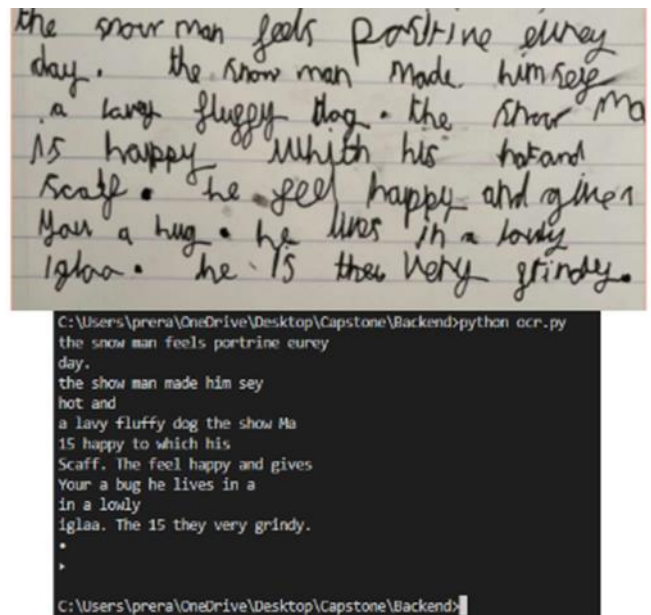 the snow man feels positrine eurey
day. the snow man made himselg
a lavg fluggy dog. the snow Ma
is happy whith his hat and
scalg. he geel happy and gives
you a hug. he lives in a lovly
iglaa. he is they very grindy.
C:\Users\prera\OneDrive\Desktop\Capstone\Backend>python ocr.py
the snow man feels portrine eurey
day.
the show man made him sey
hot and
a lavy fluffy dog the show Ma
15 happy to which his
Scaff. The feel happy and gives
Your a bug he lives in a
in a lowly
iglaa. The 15 they very grindy.
•
▸
C:\Users\prera\OneDrive\Desktop\Capstone\Backend>